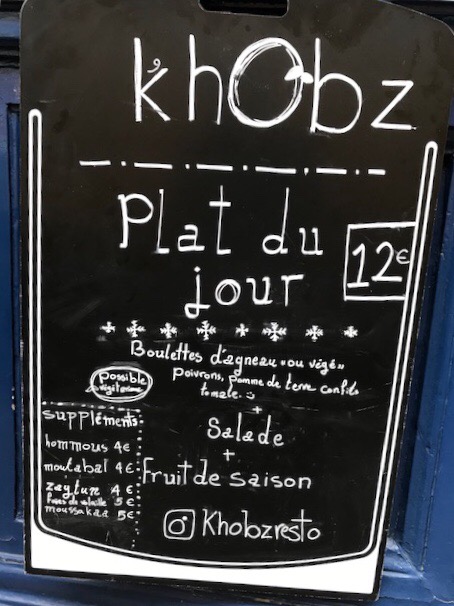 k'hObz
Plat du
jour
12€
Boulettes d'agneau «ou végé»
poivrons, pomme de terre confits
tomate.
+
Salade
+
Fruit de saison
possible
suppléments:
hommous 4€
moutabal 4€
zaytun 4€
5€
moussakaa 5€
Khobzresto